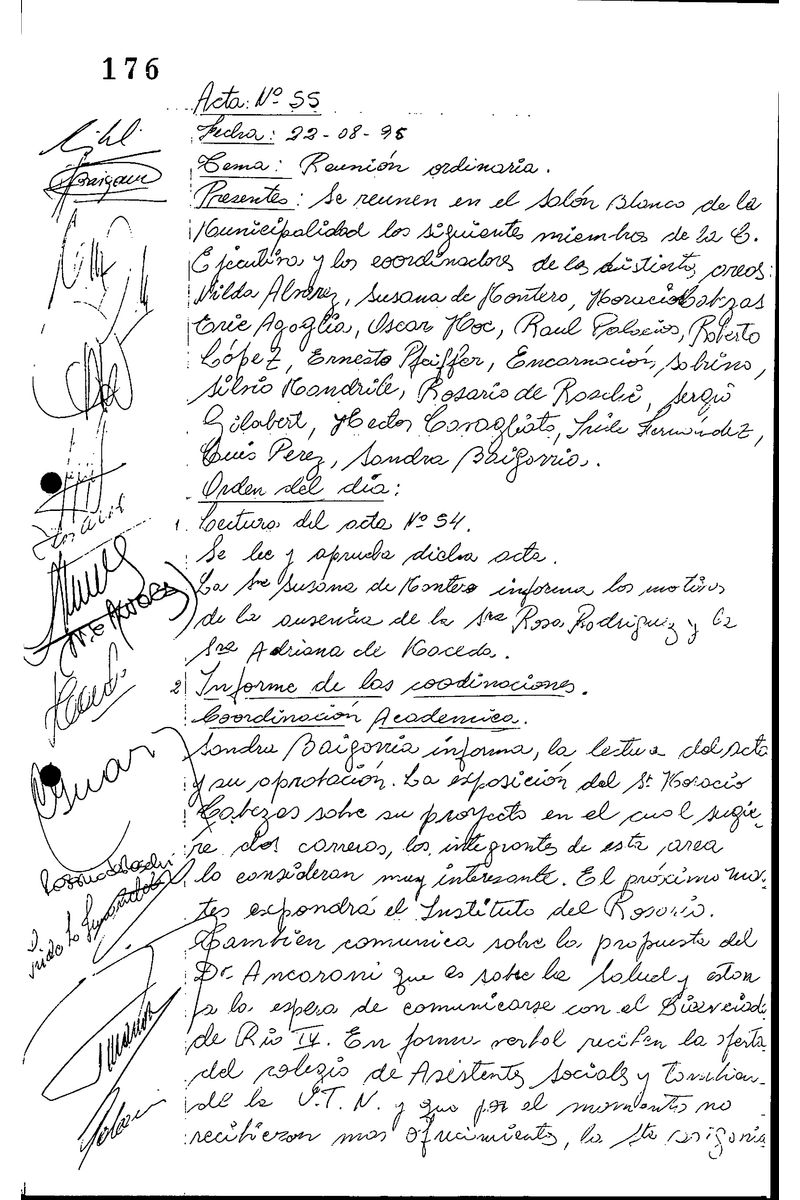 176
Acta: Nº 55
Fecha: 22-08-95
Tema: Reunión ordinaria.
Presentes: Se reunen en el Salón Blanco de la
Municipalidad los siguientes miembros de la C.
Ejecutiva y los coordinadores de las distintas areas:
Nilda Alvarez, Susana de Montero, Horacio Cabezas
Eric Agoglia, Oscar Moc, Raul Palacios, Roberto
López, Ernesto Pfeiffer, Encarnación Sobrino,
Silvio Mandrile, Rosario de Raschi, Sergio
Gilabert, Hector Cavagliato, Fernández,
Luis Perez, Sandra Baigorria.
Orden del día:
1 Lectura del acta Nº 54.
Se lee y aprueba dicha acta.
La Sra Susana de Montero informa los motivos
de la ausencia de la Sra Rosa Rodriguez y la
Sra Adriana de Macedo.
2 Informe de las coodinaciones.
Coordinación Academica.
Sandra Baigorria informa, la lectura del acta
y su aprobación. La exposición del Sr Horacio
Cabezas sobre su proyecto en el cual sugie-
re dos carreras, los integrantes de esta area
lo consideran muy interesante. El próximo mar-
tes expondrá el Instituto del Rosario.
Tambien comunica sobre la propuesta del
Dr. Ancarani que es sobre la Salud y estan
a la espera de comunicarse con el
de Rio IV. En forma verbal reciben la oferta
del colegio de Asistentes Sociales y tambien
de la U.T.N. y que por el momento no
recibieron mas ofrecimiento, la Sta